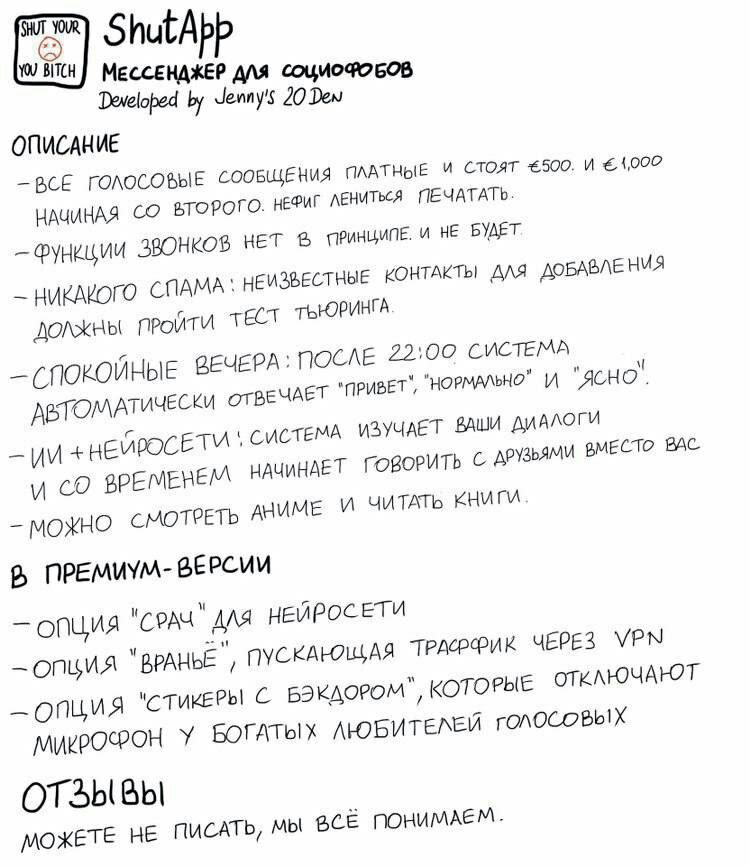 SHUT YOUR
YOU BITCH
ShutApp
МЕССЕНДЖЕР ДЛЯ СОЦИОФОБОВ
Developed by Jenny's 20 Den
ОПИСАНИЕ
- ВСЕ ГОЛОСОВЫЕ СООБЩЕНИЯ ПЛАТНЫЕ И СТОЯТ €500. И €1,000
НАЧИНАЯ СО ВТОРОГО. НЕФИГ ЛЕНИТЬСЯ ПЕЧАТАТЬ.
- ФУНКЦИИ ЗВОНКОВ НЕТ В ПРИНЦИПЕ. И НЕ БУДЕТ.
- НИКАКОГО СПАМА: НЕИЗВЕСТНЫЕ КОНТАКТЫ ДЛЯ ДОБАВЛЕНИЯ
ДОЛЖНЫ ПРОЙТИ ТЕСТ ТЬЮРИНГА.
- СПОКОЙНЫЕ ВЕЧЕРА: ПОСЛЕ 22:00 СИСТЕМА
АВТОМАТИЧЕСКИ ОТВЕЧАЕТ "ПРИВЕТ", "НОРМАЛЬНО" И "ЯСНО".
- ИИ + НЕЙРОСЕТИ: СИСТЕМА ИЗУЧАЕТ ВАШИ ДИАЛОГИ
И СО ВРЕМЕНЕМ НАЧИНАЕТ ГОВОРИТЬ С ДРУЗЬЯМИ ВМЕСТО ВАС
- МОЖНО СМОТРЕТЬ АНИМЕ И ЧИТАТЬ КНИГИ.
В ПРЕМИУМ-ВЕРСИИ
- ОПЦИЯ "СРАЧ" ДЛЯ НЕЙРОСЕТИ
- ОПЦИЯ "ВРАНЬЁ", ПУСКАЮЩАЯ ТРАФФИК ЧЕРЕЗ VPN
- ОПЦИЯ "СТИКЕРЫ С БЭКДОРОМ", КОТОРЫЕ ОТКЛЮЧАЮТ
МИКРОФОН У БОГАТЫХ ЛЮБИТЕЛЕЙ ГОЛОСОВЫХ
ОТЗЫВЫ
МОЖЕТЕ НЕ ПИСАТЬ, МЫ ВСЁ ПОНИМАЕМ.